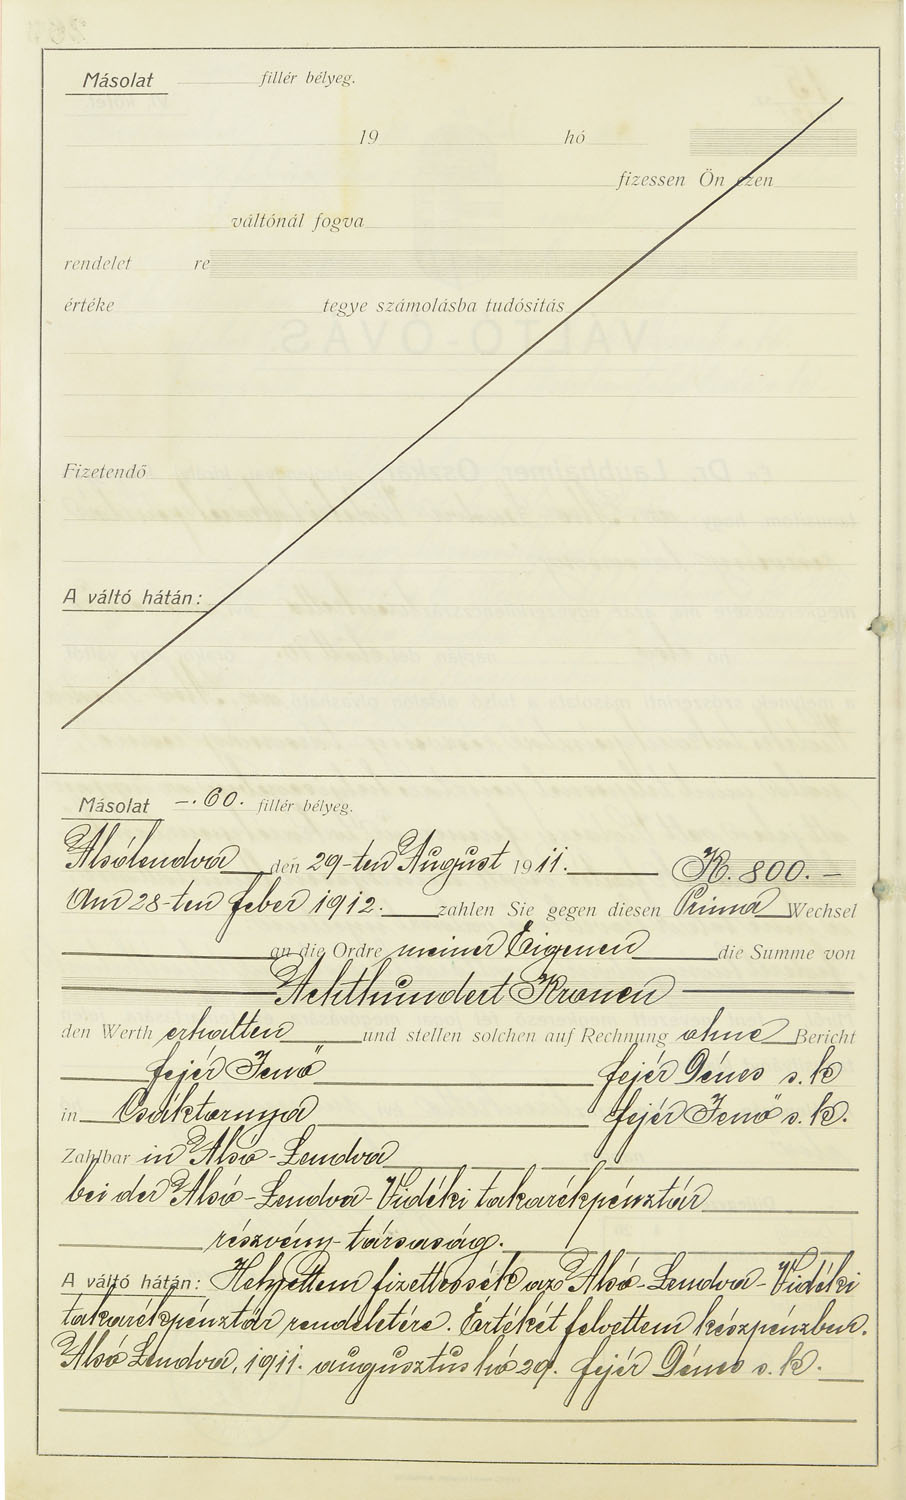 Másolat fillér bélyeg.
19 hó
fizessen Ön ezen
váltónál fogva
rendelet re
értéke tegye számolásba tudósítás
Fizetendő
A váltó hátán:
Másolat —.60. fillér bélyeg.
Alsólendva den 29-ten August 1911. K. 800.—
Am 28-ten feber 1912. zahlen Sie gegen diesen Prima Wechsel
an die Ordre meiner Eigenen die Summe von
Achthundert Kronen
den Werth erhalten und stellen solchen auf Rechnung ohne Bericht
fejér Jenő fejér Dénes s. k
in Csáktornya fejér Jenő s. k.
Zahlbar in Alsó-Lendva
bei der Alsó-Lendva-Vidéki takarékpénztár
részvény-társaság.
A váltó hátán: Helyettem fizettessék az Alsó-Lendva-Vidéki
takarékpénztár rendeletére. Értékét felvettem készpénzben.
Alsó Lendva, 1911. augusztus hó 29. fejér Dénes s. k.